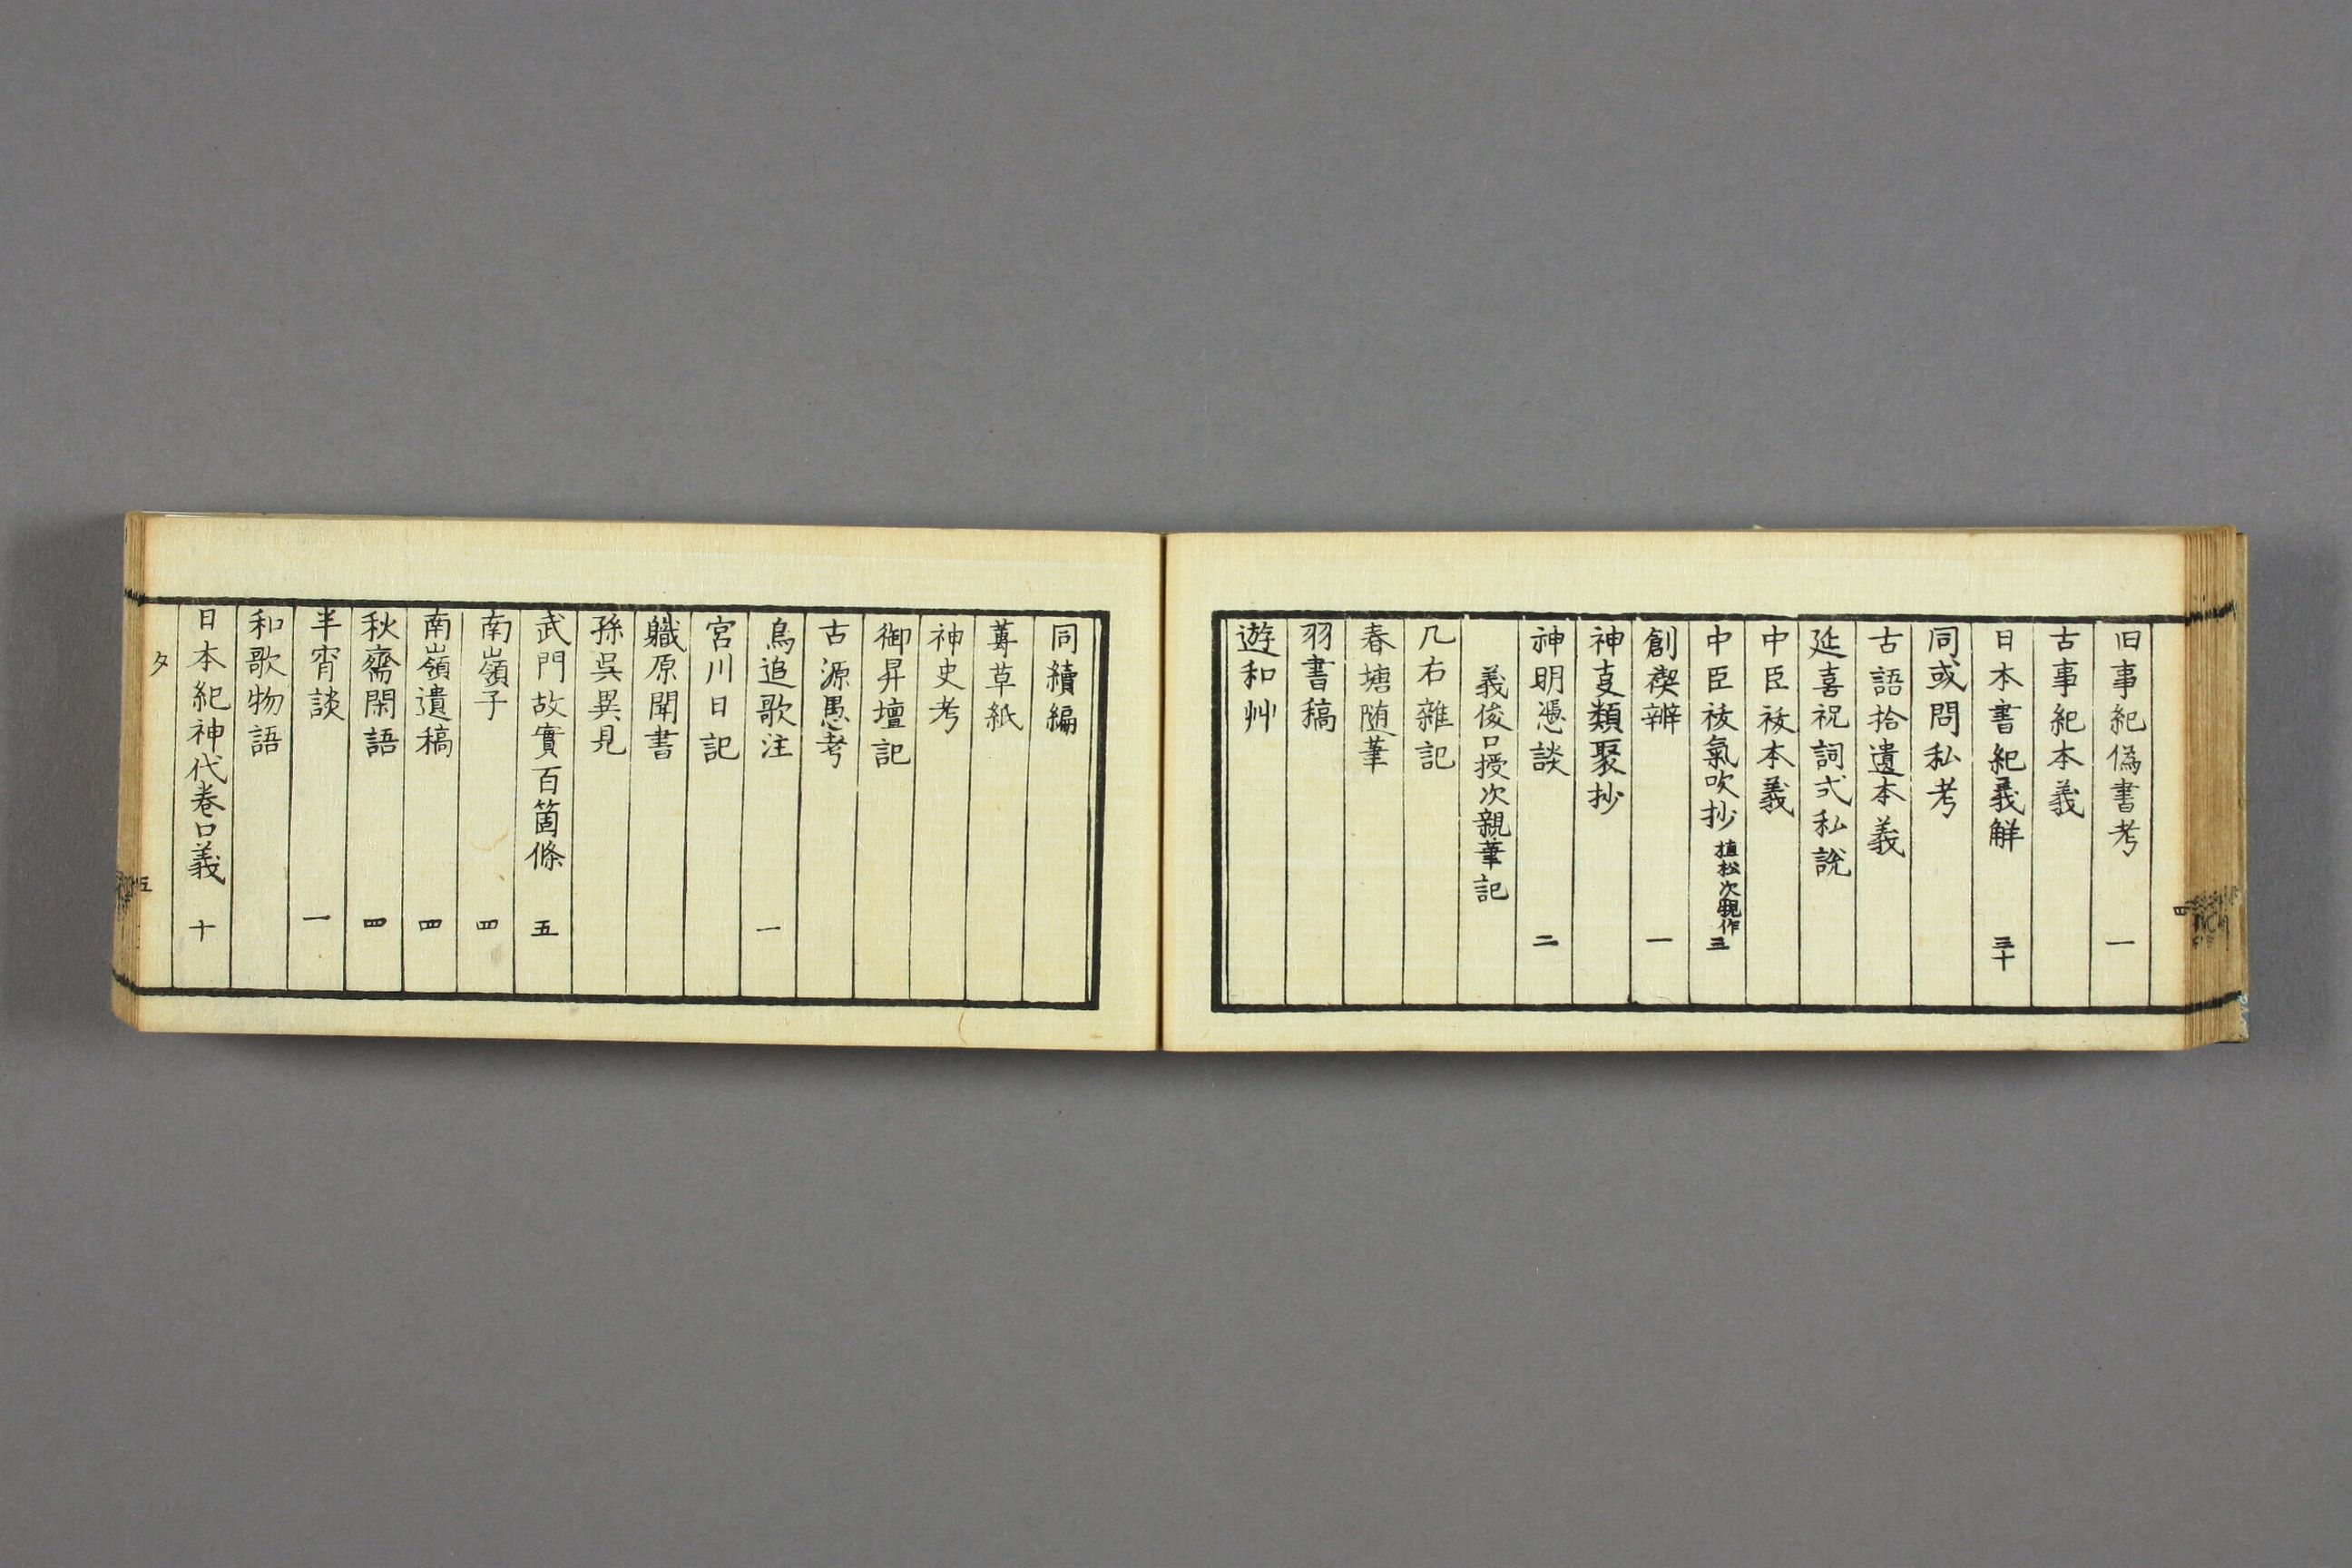 旧事紀偽書考 一
古事紀本義
日本書紀義解 三十
同或問私考
古語拾遺本義
延喜祝詞式私説
中臣祓本義
中臣祓氣吹抄 植松次親作 三
創禊辨 一
神㕝類聚抄
神明憑談 二
義俊口授次親筆記
几右雑記
春塘随筆
羽書稿
遊和艸
四
同續編
蓴草紙
神史考
御昇壇記
古源愚考
烏追歌注 一
宮川日記
職原聞書
孫呉異見
武門故實百箇條 五
南嶺子 四
南嶺遺稿 四
秋齋閑語 四
半宵談 一
和歌物語
日本紀神代巻口義 十
タ
五